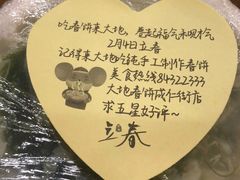 吃春饼来大地 卷起福合来咽怀
2月4日立春
记得来大地吃纯手工制作春饼
美食热线84322333
大地春饼成仁街店
求五星好评~
立春